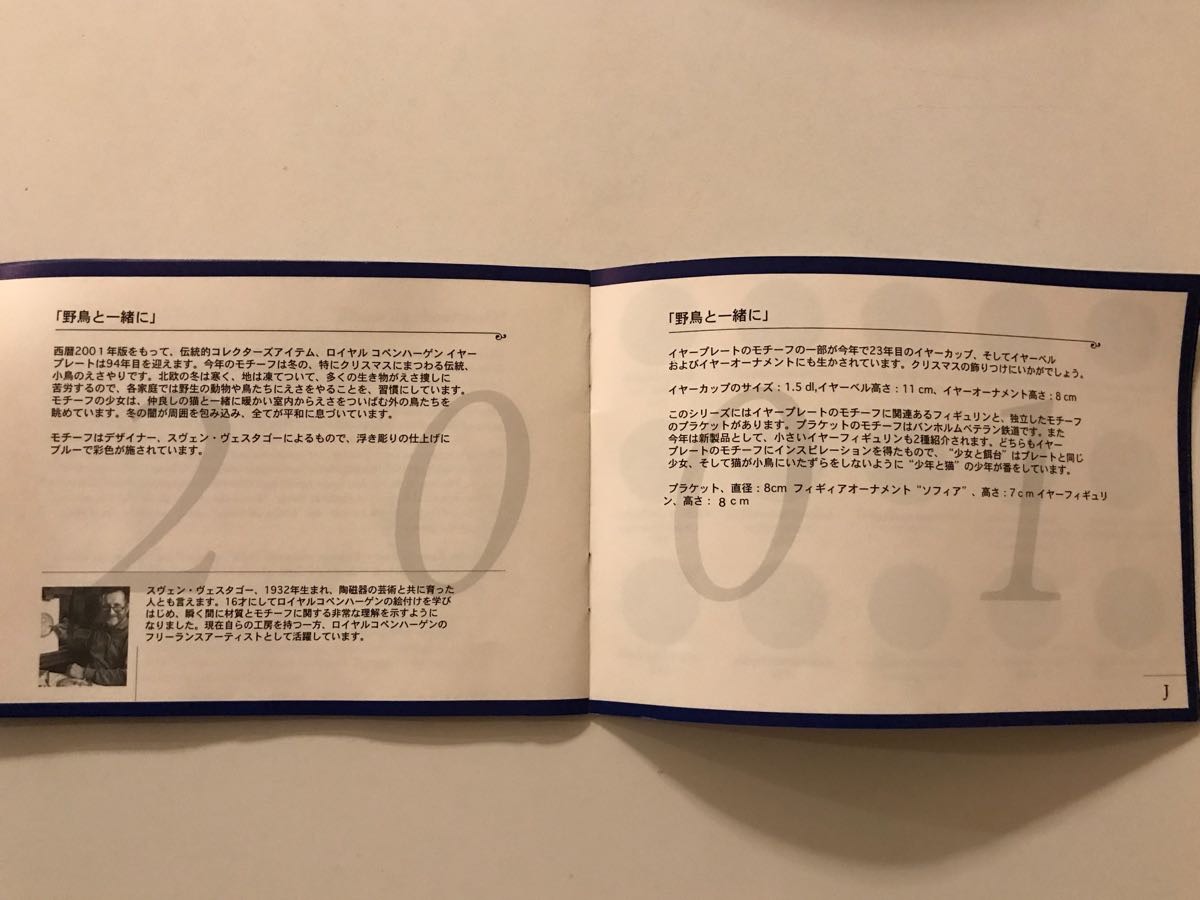 「野鳥と一緒に」
西暦2001年版をもって、伝統的コレクターズアイテム、ロイヤル コペンハーゲン イヤー
プレートは94年目を迎えます。今年のモチーフは冬の、特にクリスマスにまつわる伝統、
小鳥のえさやりです。北欧の冬は寒く、地は凍てついて、多くの生き物がえさ捜しに
苦労するので、各家庭では野生の動物や鳥たちにえさをやることを、習慣にしています。
モチーフの少女は、仲良しの猫と一緒に暖かい室内からえさをついばむ外の鳥たちを
眺めています。冬の闇が周囲を包み込み、全てが平和に息づいています。
モチーフはデザイナー、スヴェン・ヴェスタゴーによるもので、浮き彫りの仕上げに
ブルーで彩色が施されています。
スヴェン・ヴェスタゴー、1932年生まれ、陶磁器の芸術と共に育った
人とも言えます。16才にしてロイヤルコペンハーゲンの絵付けを学び
はじめ、瞬く間に材質とモチーフに関する非常な理解を示すように
なりました。現在自らの工房を持つ一方、ロイヤルコペンハーゲンの
フリーランスアーティストとして活躍しています。
「野鳥と一緒に」
イヤープレートのモチーフの一部が今年で23年目のイヤーカップ、そしてイヤーベル
およびイヤーオーナメントにも生かされています。クリスマスの飾りつけにいかがでしょう。
イヤーカップのサイズ：1.5 dl,イヤーベル高さ：11 cm、イヤーオーナメント高さ：8 cm
このシリーズにはイヤープレートのモチーフに関連あるフィギュリンと、独立したモチーフ
のプラケットがあります。プラケットのモチーフはバンホルムベテラン鉄道です。また
今年は新製品として、小さいイヤーフィギュリンも2種紹介されます。どちらもイヤー
プレートのモチーフにインスピレーションを得たもので、“少女と餌台”はプレートと同じ
少女、そして猫が小鳥にいたずらをしないように“少年と猫”の少年が番をしています。
プラケット、直径：8cm フィギィアオーナメント“ソフィア”、高さ：7ｃｍイヤーフィギュリ
ン、高さ： ８ｃｍ
2001
J